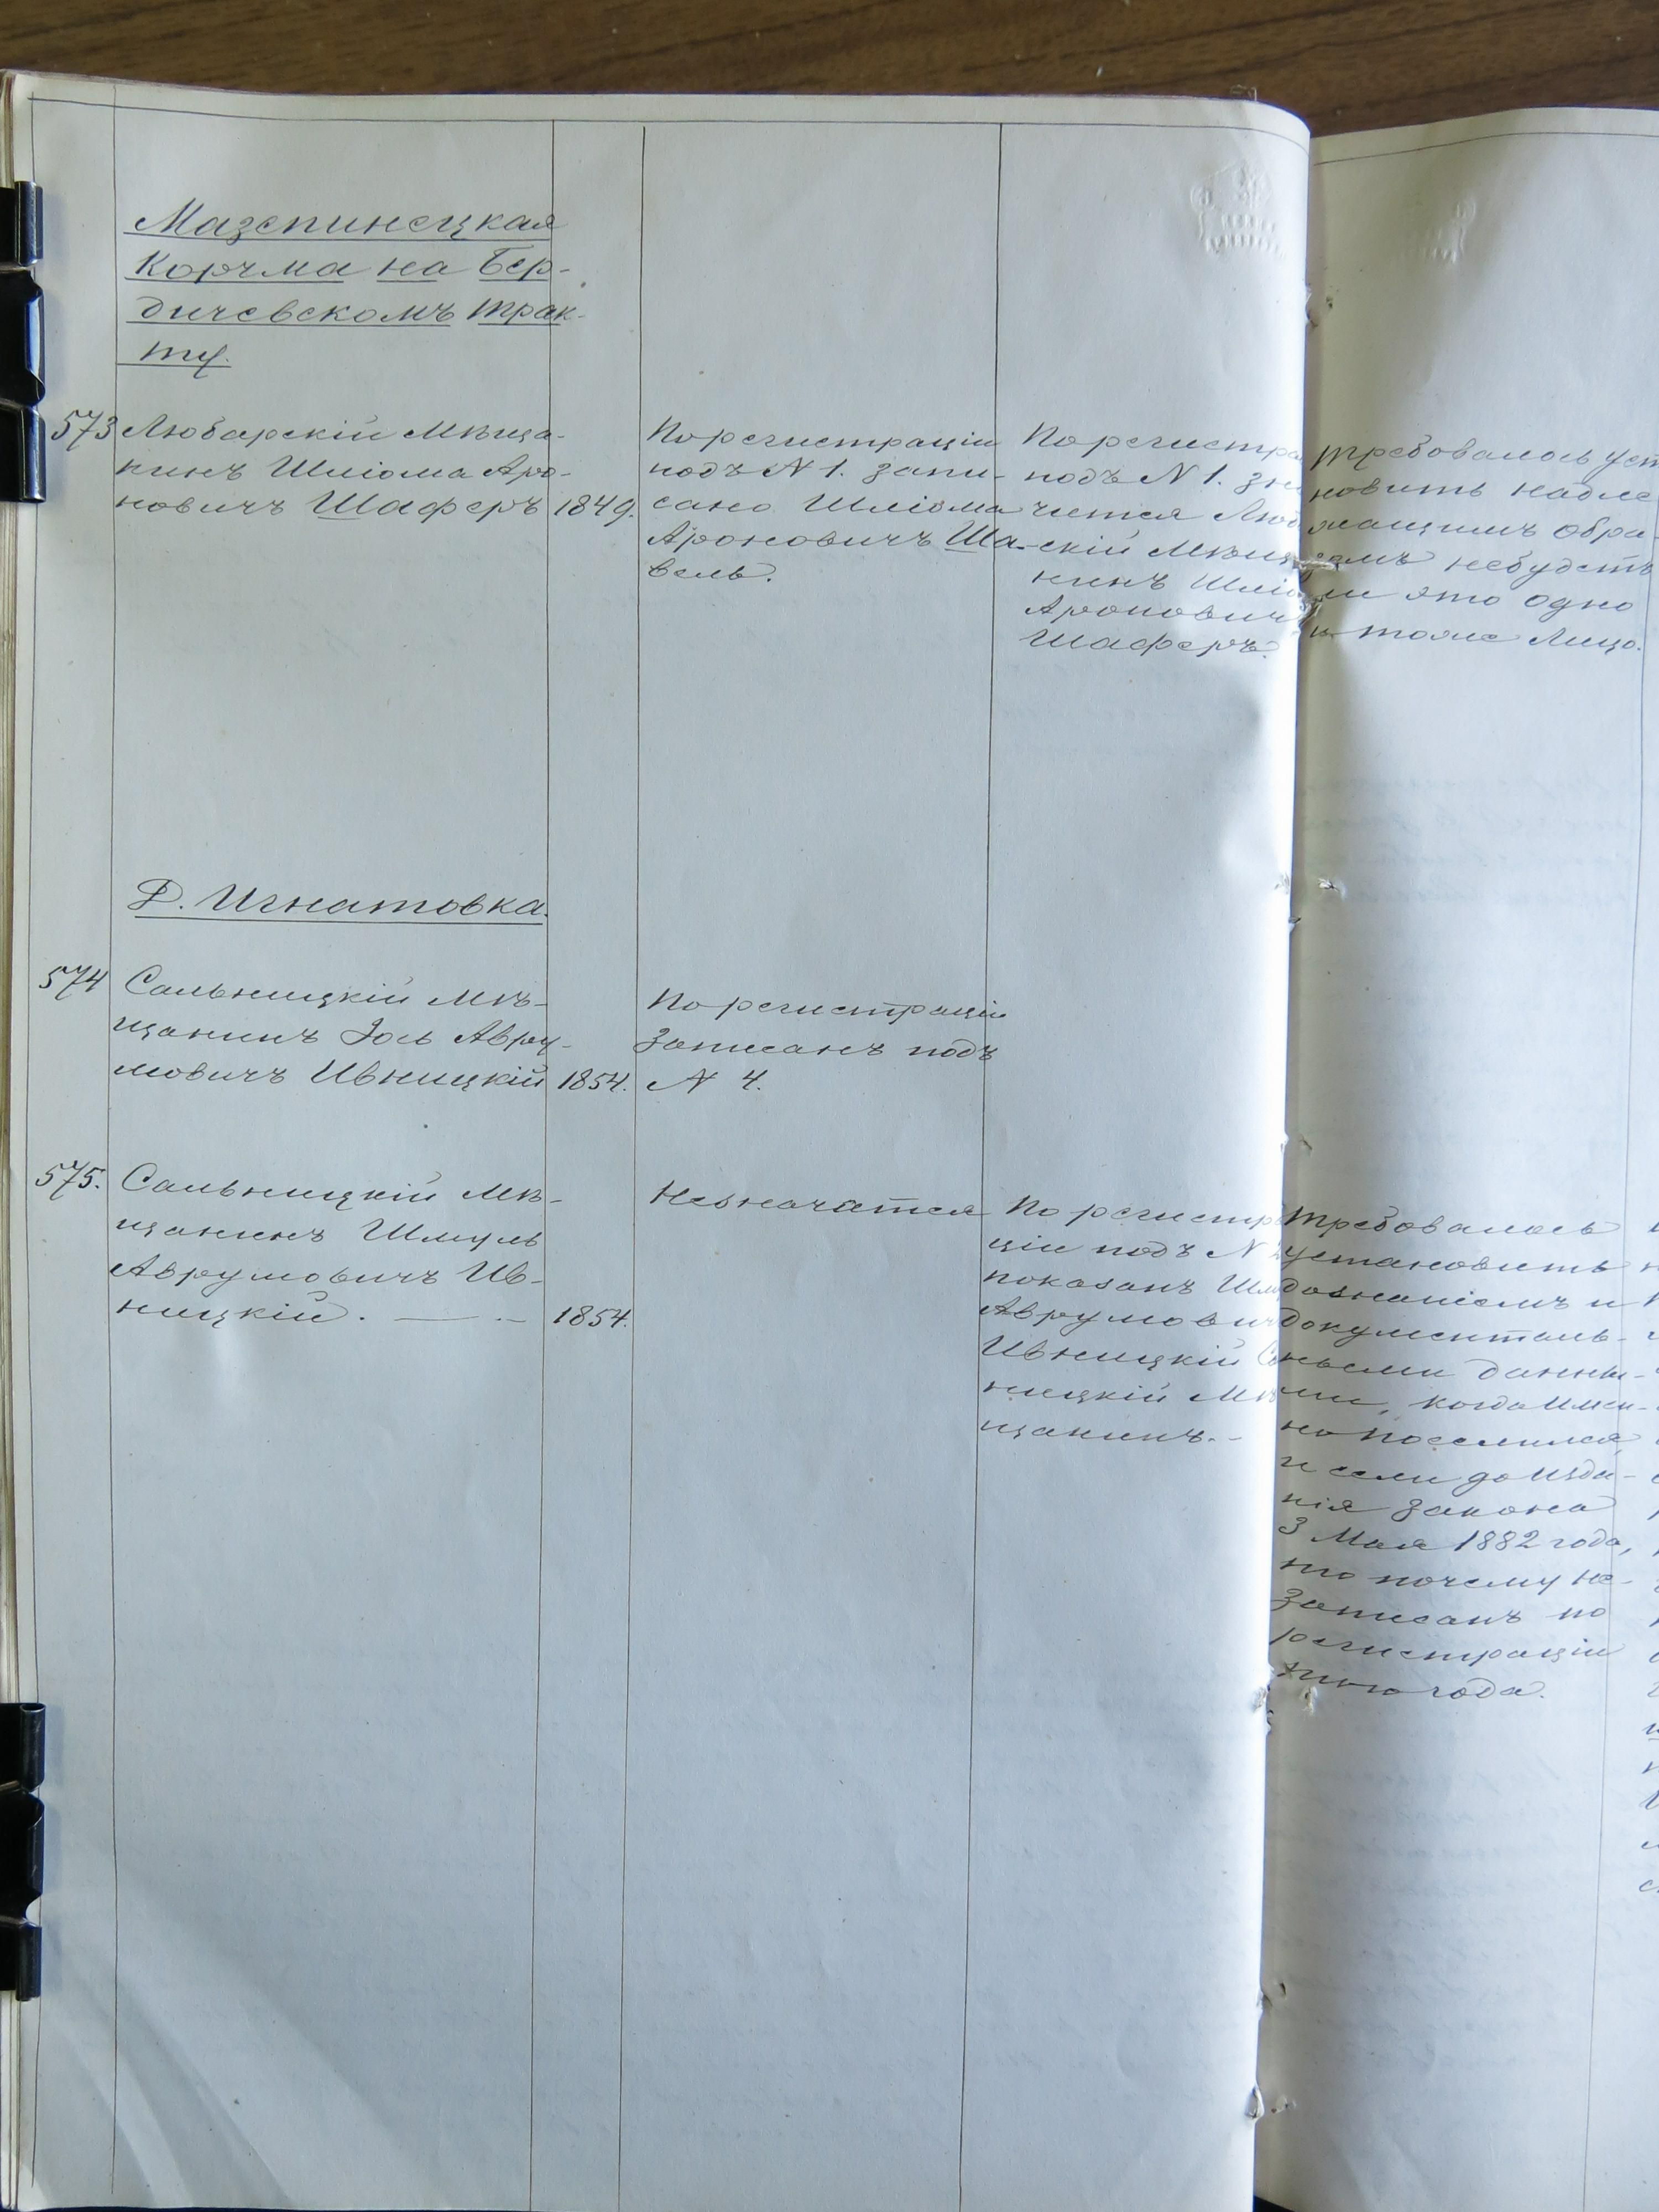 Мазепинецкая
Корчма на Бер-
дичевскомъ трак-
ту.
573 Любарскій Мѣща-
нинъ Шліома Аро-
новичъ Шаферъ 1849.
По регистраціи
подъ N 1. запи-
сано Шліома
Ароновичъ Ша-
вель.
По регистра
подъ N 1. зн
чится Люб
скій Мѣщ
нинъ Шліо
Ароновичъ
Шаферъ.
Требовалось уст
новить надле
жащимъ обра-
зомъ небудетъ
ли это одно
и тоже Лицо.
Д. Игнатовка.
574 Сальницкій Мѣ-
щанинъ Іось Авру-
мовичъ Ивницкій 1854.
По регистраціи
Записанъ подъ
N 4.
575. Сальницкій Мѣ-
щанинъ Шмуль
Аврумовичъ Ив-
ницкій. 1854.
Незначатся
По регистр
ціи подъ N
показанъ Шм
Аврумович
Ивницкій
ницкій Мѣ
щанинъ.-
Требовалось
установить
дознаніемъ и
документаль-
ными данны-
ми, когда Имен-
но поселился
и если до Изда-
нія закона
3 Мая 1882 года,
то почему не-
записанъ по
регистраціи
этого года.